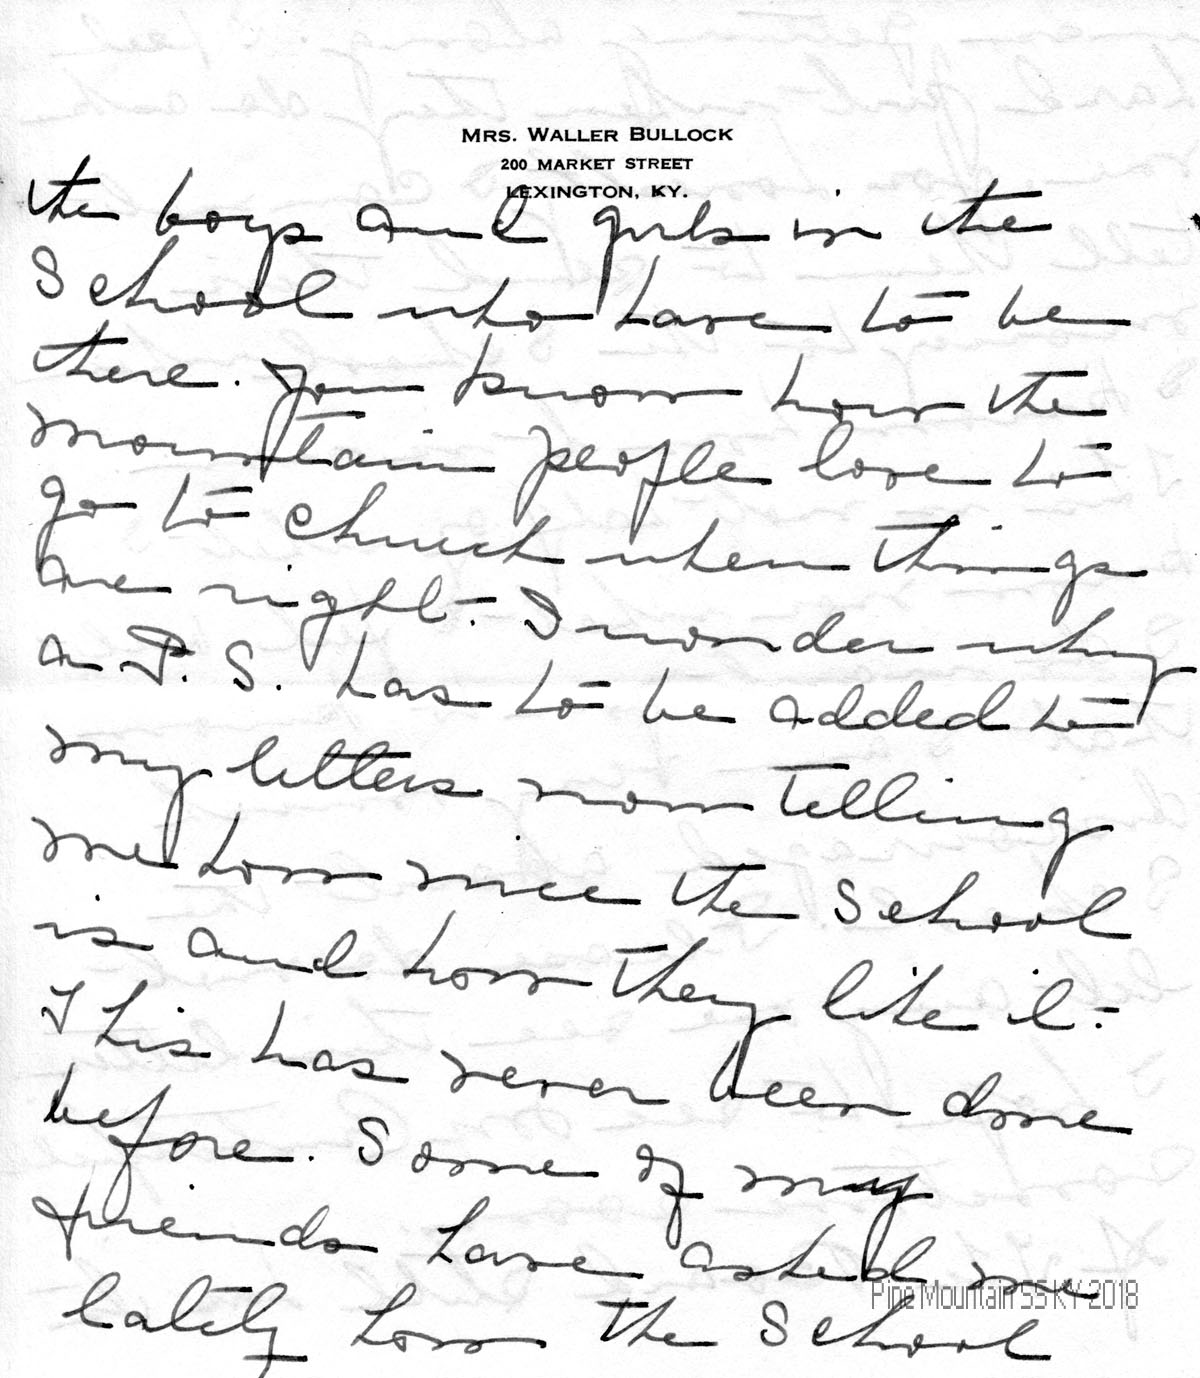 MRS. WALLER BULLOCK
200 MARKET STREET
LEXINGTON, KY.
the boys and girls in the
School who have to be
there. You know how the
mountain people love to
go to church when things
are right. I wonder why
a P.S. has to be added to
my letters now telling
me how nice the School
is and how they like it.
This has never been done
before. Some of my
friends have asked me
lately how the School
Pine Mountain SS KY 2018